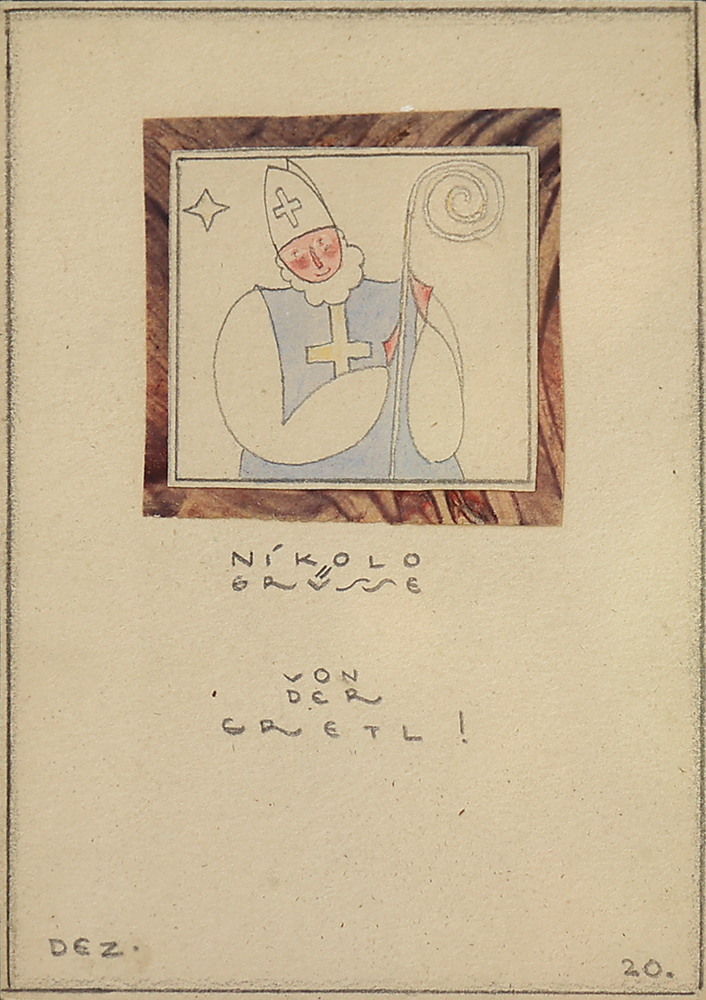 NÍKOLO
GRÜSSE
VON
DER
GRETL!
DEZ.
20.